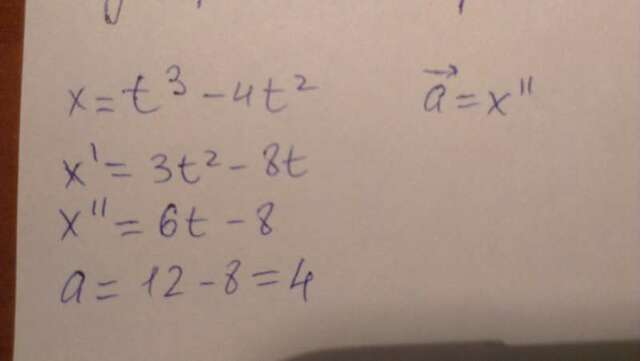 x = t³ - 4t²
a⃗ = x''
x' = 3t² - 8t
x'' = 6t - 8
a = 12 - 8 = 4